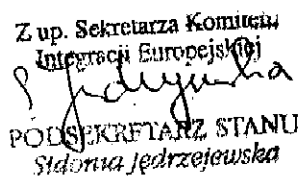 Z up. Sekretarza Komitetu
Integracji Europejskiej
PODSEKRETARZ STANU
Sidonia Jędrzejewska